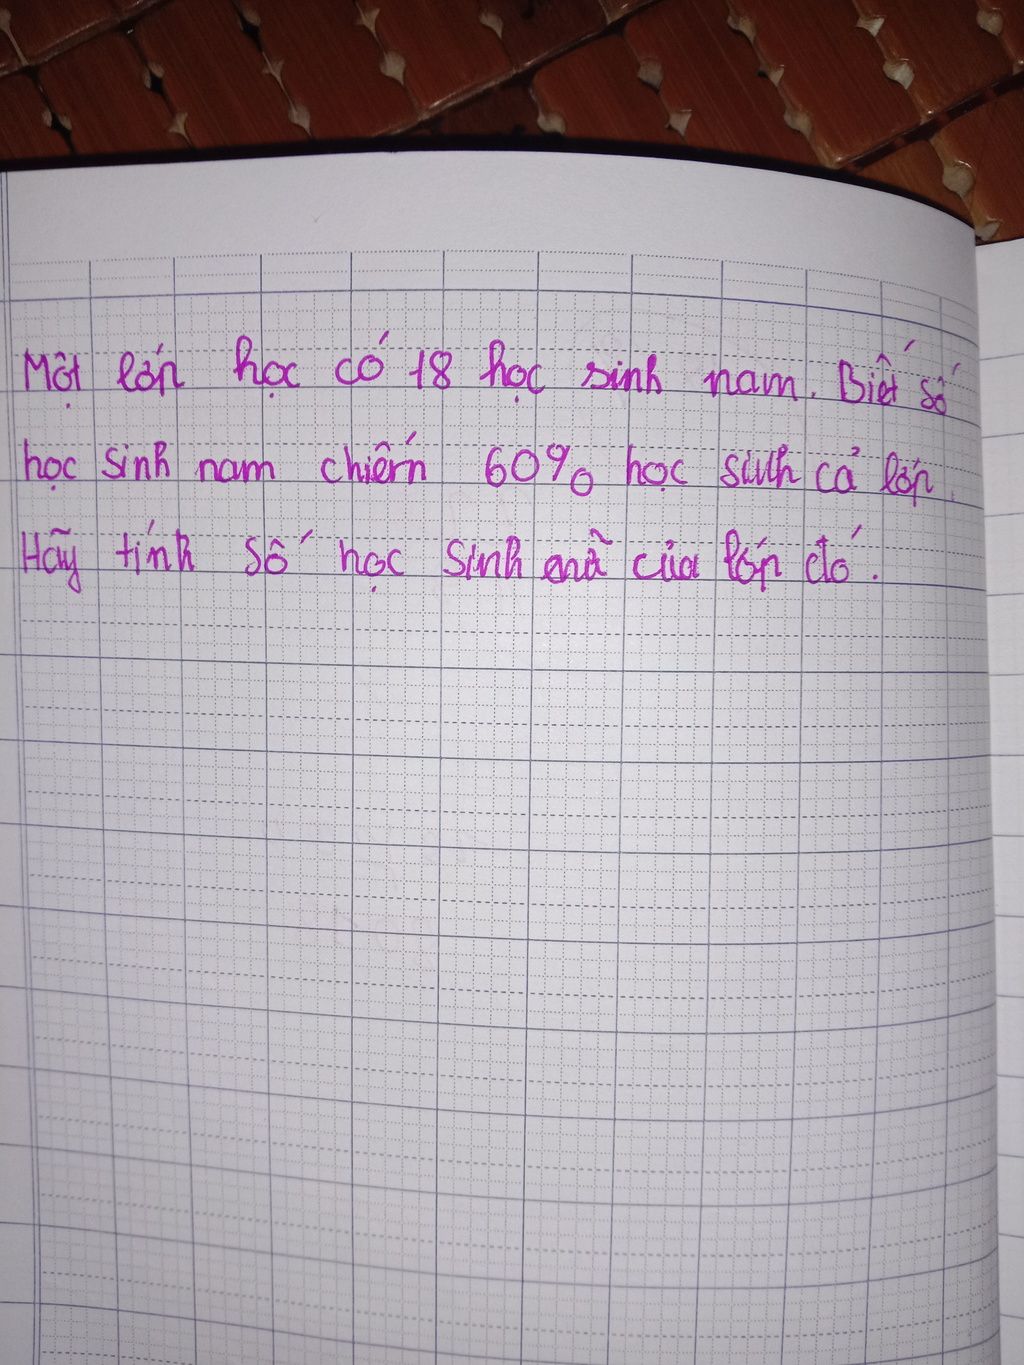 Một lớp học có 18 học sinh nam. Biết số
học sinh nam chiếm 60% học sinh cả lớp.
Hãy tính số học sinh nữ của lớp đó.